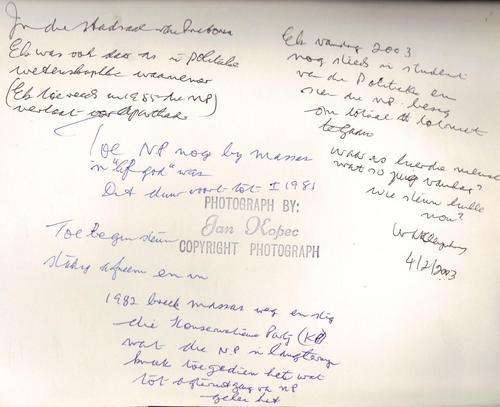 In die stadsaal van Pretoria
Ek was ook daar as 'n politieke
wetenskaplike waarnemer
(Ek toe reeds in 1985 die NP
verlaat oor Apartheid
Toe NP nog by massas
in "lief god" was
Dit duur voort tot ± 1981
PHOTOGRAPH BY:
Jan Kopec
COPYRIGHT PHOTOGRAPH
Toe begin steun
en in
1982 breek massas weg en stig
die Konserwatiewe Party (KP)
wat die NP 'n langtermyn
knak toegedien het wat
tot agteruitgang van NP
gelei het
Ek vandag 2003
nog steeds 'n student
van die Politieke en
oor die NP besig
om totaal te
te gaan
Waar is hierdie mense
wat so jeug vandag?
wie steun hulle
nou?
4/2/2003